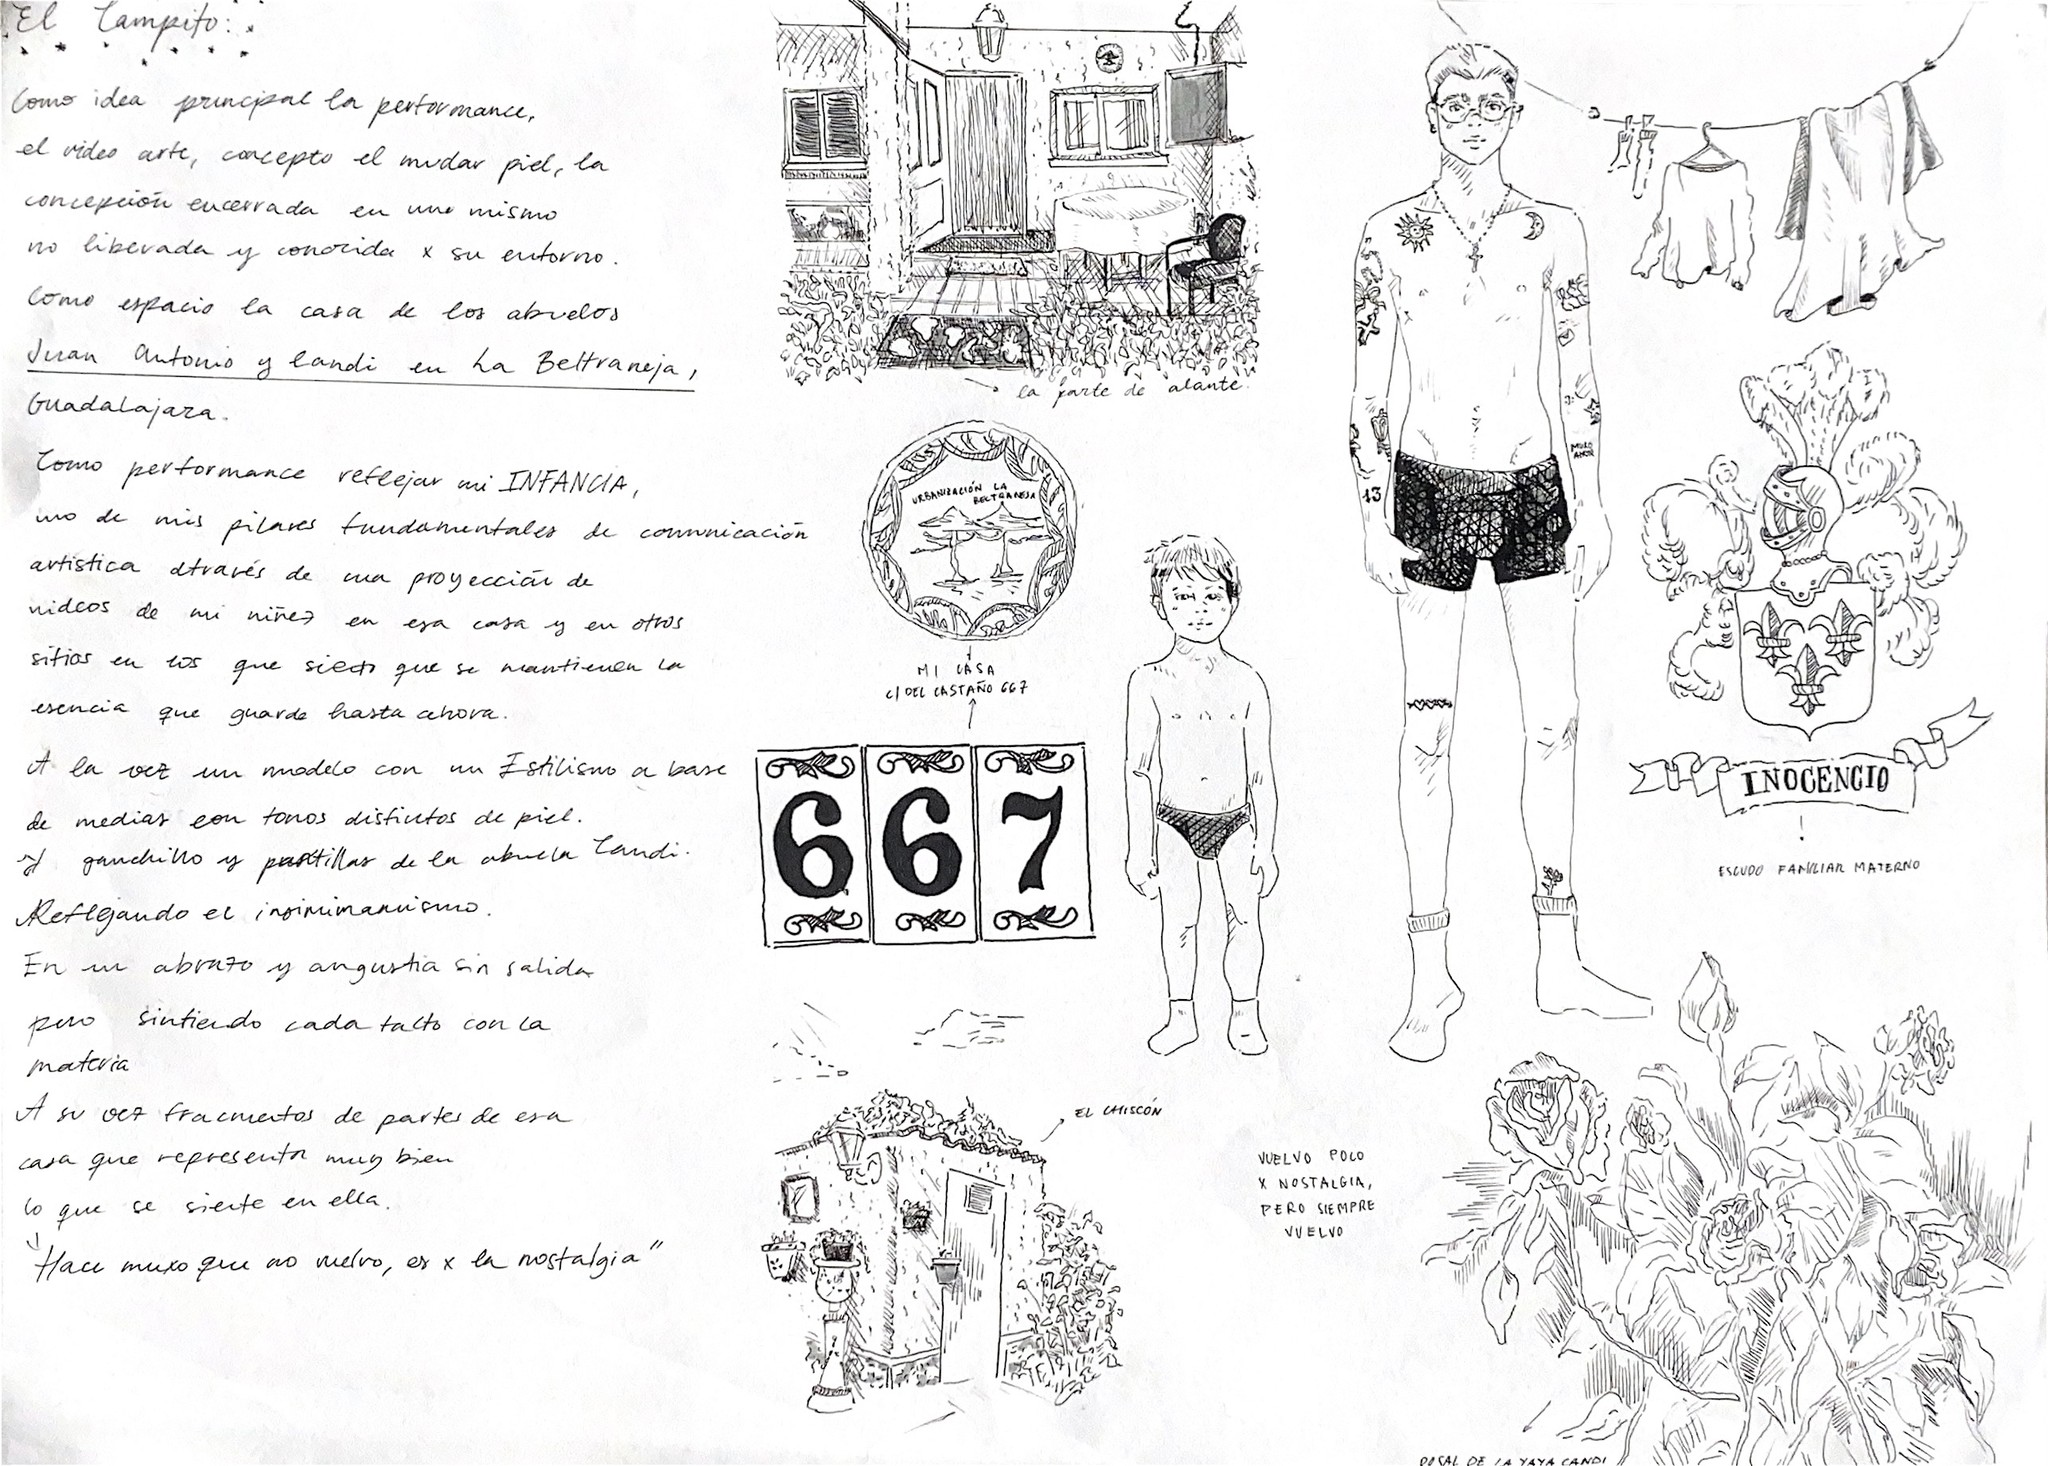 El Campito:
Como idea principal la performance,
el video arte, concepto el mudar piel, la
concepción encerrada en uno mismo
no liberada y conocida x su entorno.
Como espacio la casa de los abuelos
Juan Antonio y Candi en La Beltraneja,
Guadalajara.
Como performance reflejar mi INFANCIA,
uno de mis pilares fundamentales de comunicación
artística através de una proyección de
videos de mi niñez en esa casa y en otros
sitios en los que siento que se mantienen la
esencia que guarde hasta ahora.
A la vez un modelo con un Estilismo a base
de medias con tonos distintos de piel.
y ganchillo y puntillas de la abuela Candi.
Reflejando el
En un abrazo y angustia sin salida
pero sintiendo cada tacto con la
materia
A su vez fracmentos de partes de esa
casa que representn muy bien
lo que se siente en ella.
"Hace muxo que no vuelvo, es x la nostalgia"
la parte de alante.
URBANIZACIÓN LA
BELTRANEJA
MI CASA
C/ DEL CASTAÑO 667
667
EL CHISCÓN
VUELVO POCO
X NOSTALGIA,
PERO SIEMPRE
VUELVO
13
INOCENCIO
ESCUDO FAMILIAR MATERNO
ROSAL DE LA YAYA CANDI